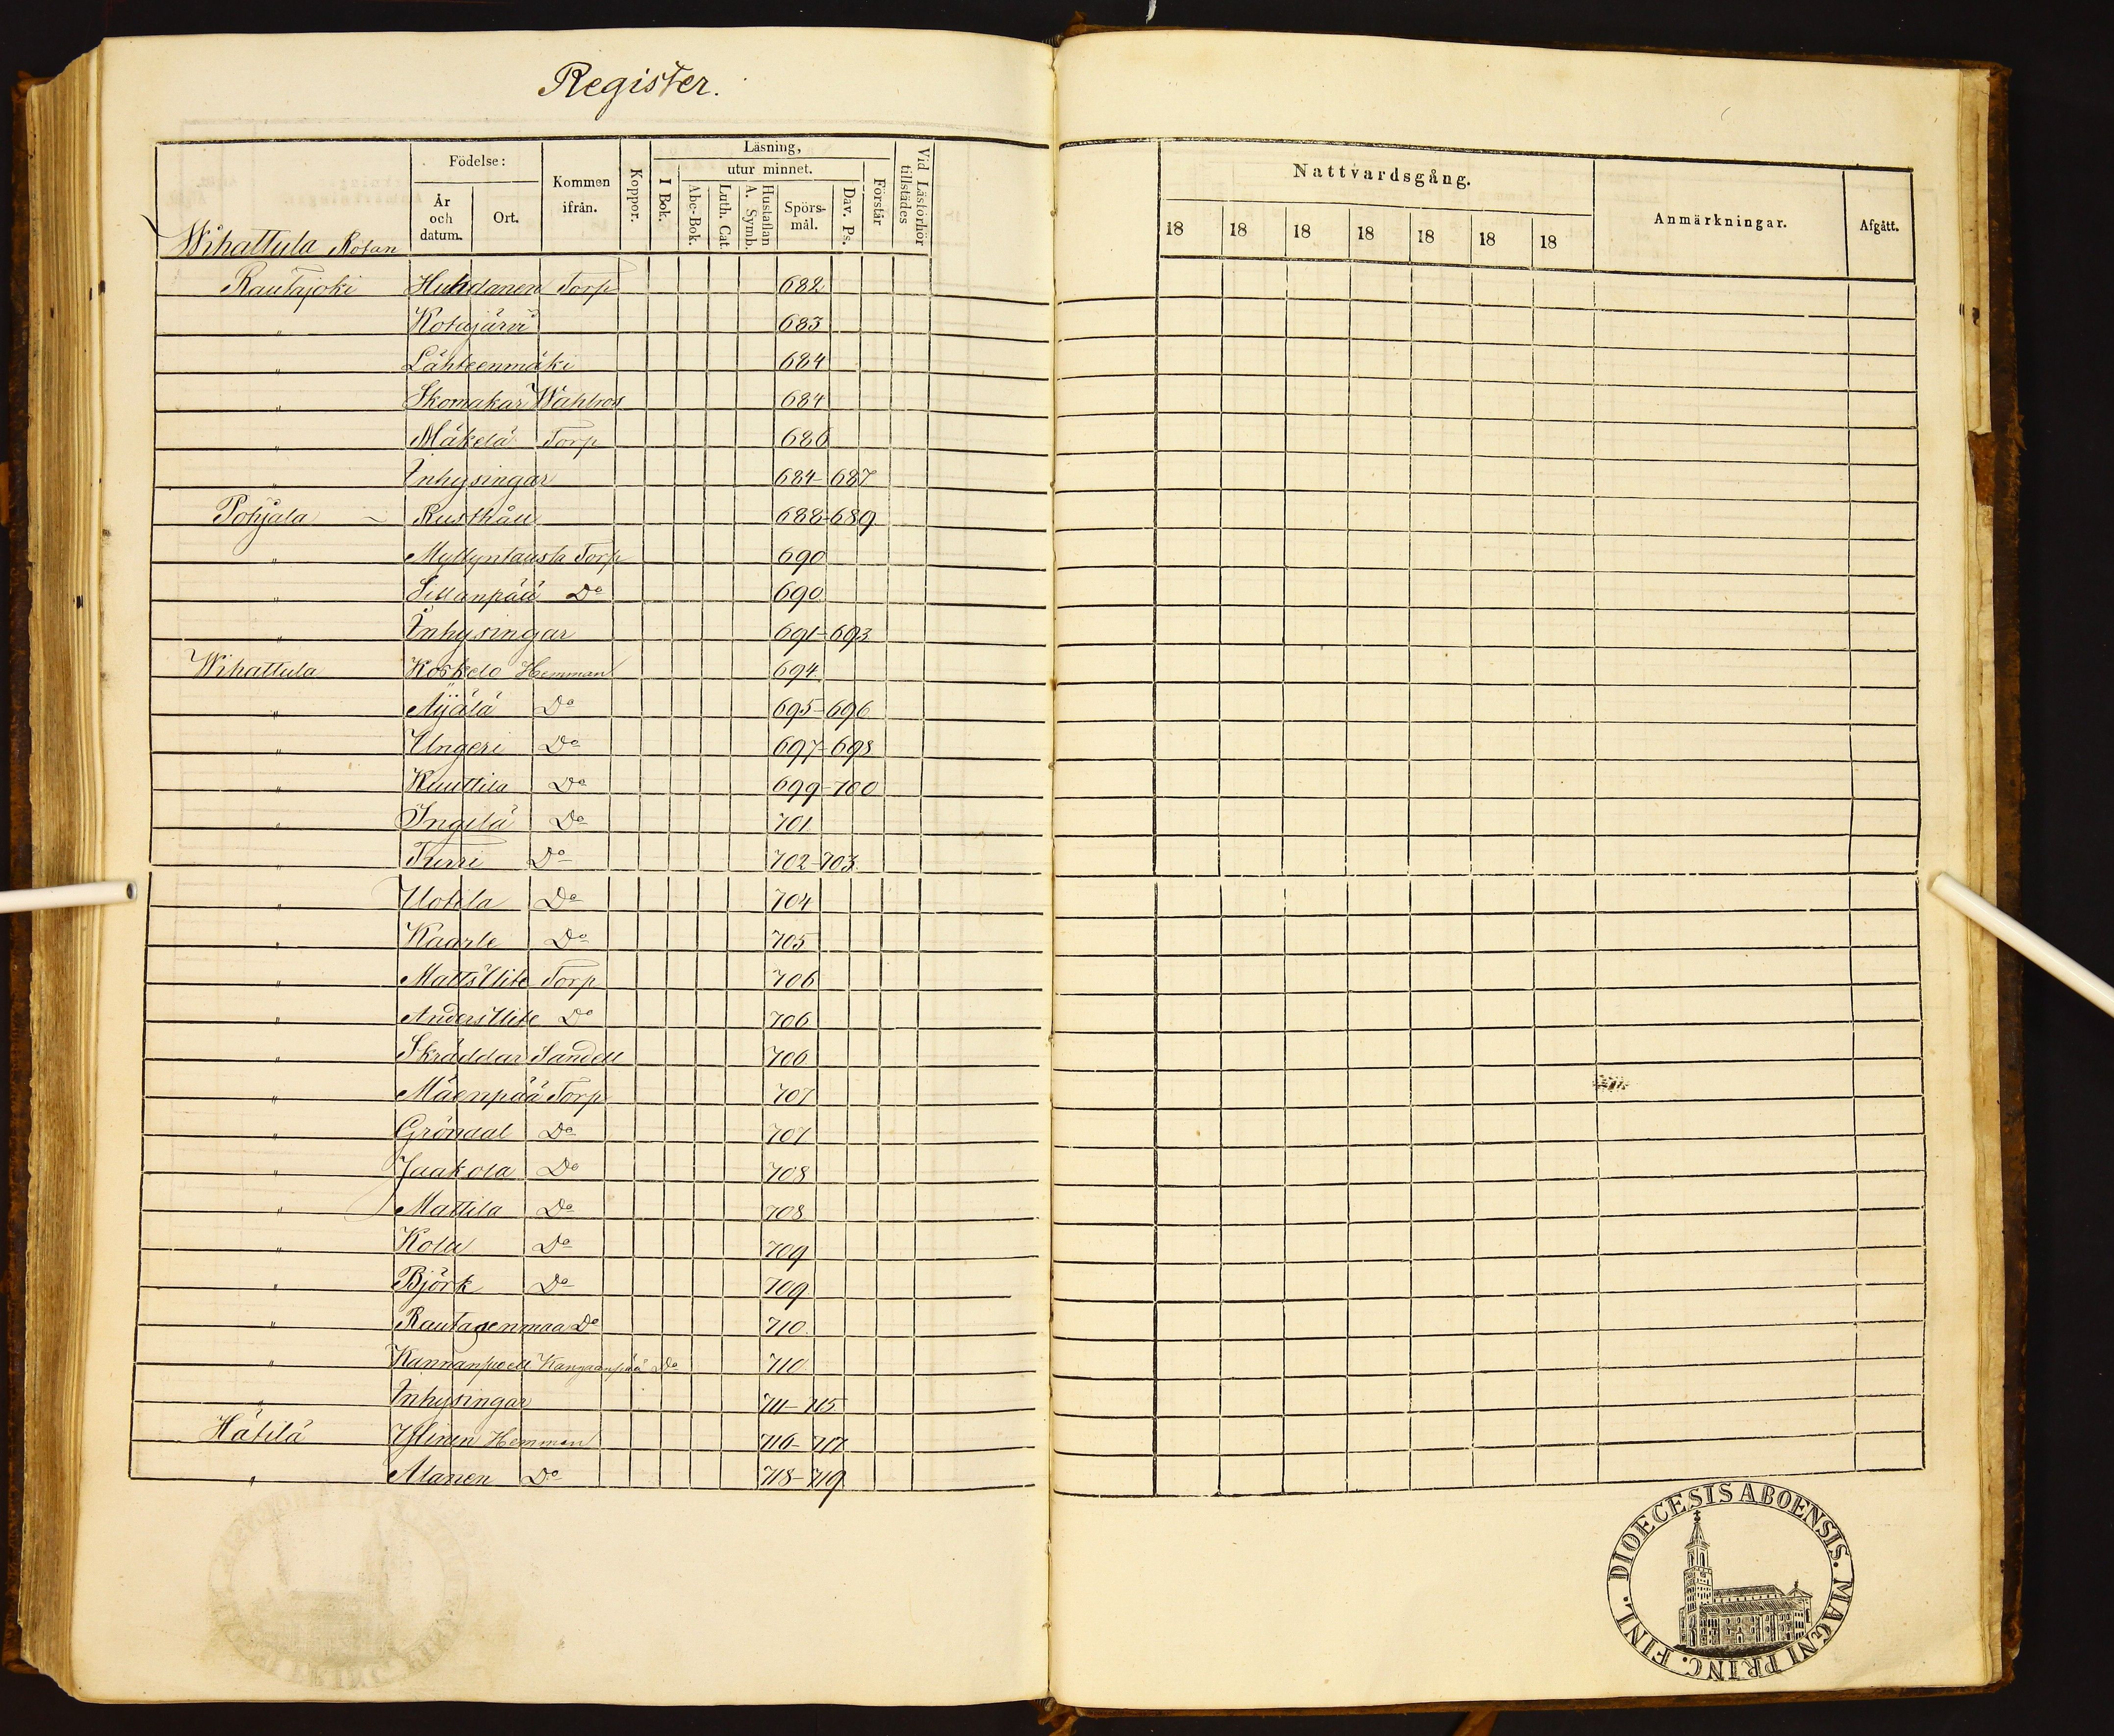 Register.
Födelse:
År
och
datum.
Ort.
Kommen
ifrån.
Koppor.
Läsning,
utur minnet.
I Bok.
Abc-Bok.
Luth. Cat.
Hustaflan
A. Symb.
Spörs-
mål.
Dav. Ps.
Förstår
Vid Läsförhör
tillstädes
Wihattula Rotan
Rautajoki Huhdanen Torp 682
" Kotajärvi 683
" Lähteenmäki 684
" Skomakar Wahlros 684
" Mäkelä Torp 686
" Inhysingar 684-687
Pohjala - Rusthåll 688-689
" Myllyntausta Torp 690
" Sillanpää Do 690
" Inhysingar 691-693
Wihattula Koskelo Hemman 694
" Äijälä Do 695-696
" Ungeri Do 697-698
" Kuuttila Do 699-700
" Ingilä Do 701
" Turri Do 702-703
" Uotila Do 704
" Kaarle Do 705
" Matts Uite Torp 706
" Anders Uite Do 706
" Skräddar Sandell 706
" Mäenpää Torp 707
" Gröndal Do 707
" Jaakola Do 708
" Mattila Do 708
" Kota Do 709
" Björk Do 709
" Rautagenmaa Do 710
" Kangaanpää Do 710
" Inhysingar 711-715
Hätilä Ylinen Hemman 716-717
" Alanen Do 718-719
Nattvardsgång.
18 18 18 18 18 18 18
Anmärkningar.
Afgått.
DIOECESIS ABOENSIS. MAGNI PRINC. FINL.